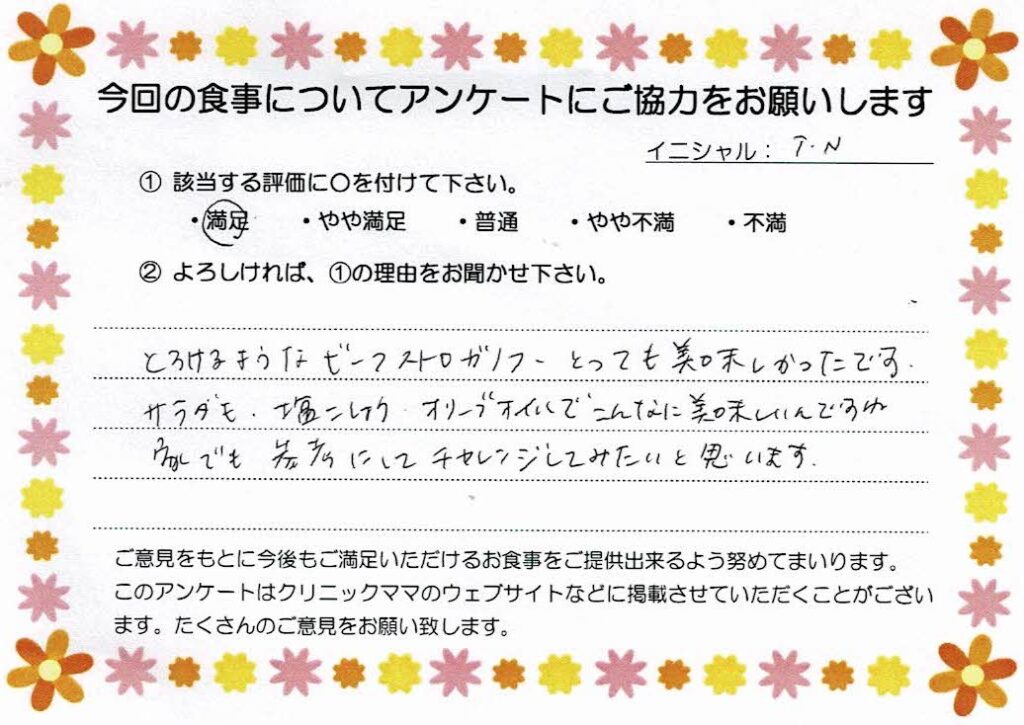 今回の食事についてアンケートにご協力をお願いします
イニシャル： T・N
① 該当する評価に〇を付けて下さい。
・満足 ・やや満足 ・普通 ・やや不満 ・不満
② よろしければ、①の理由をお聞かせ下さい。
とろけるようなビーフストロガノフー とっても美味しかったです.
サラダも、塩こしょう・オリーブオイルでこんなに美味しいんですね
家でも 参考にして チャレンジしてみたいと思います.
ご意見をもとに今後もご満足いただけるお食事をご提供出来るよう努めてまいります。
このアンケートはクリニックママのウェブサイトなどに掲載させていただくことがござい
ます。たくさんのご意見をお願い致します。